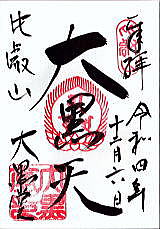 奉拝
令和四年
十一月六日
大黒天
比叡山
大黒堂